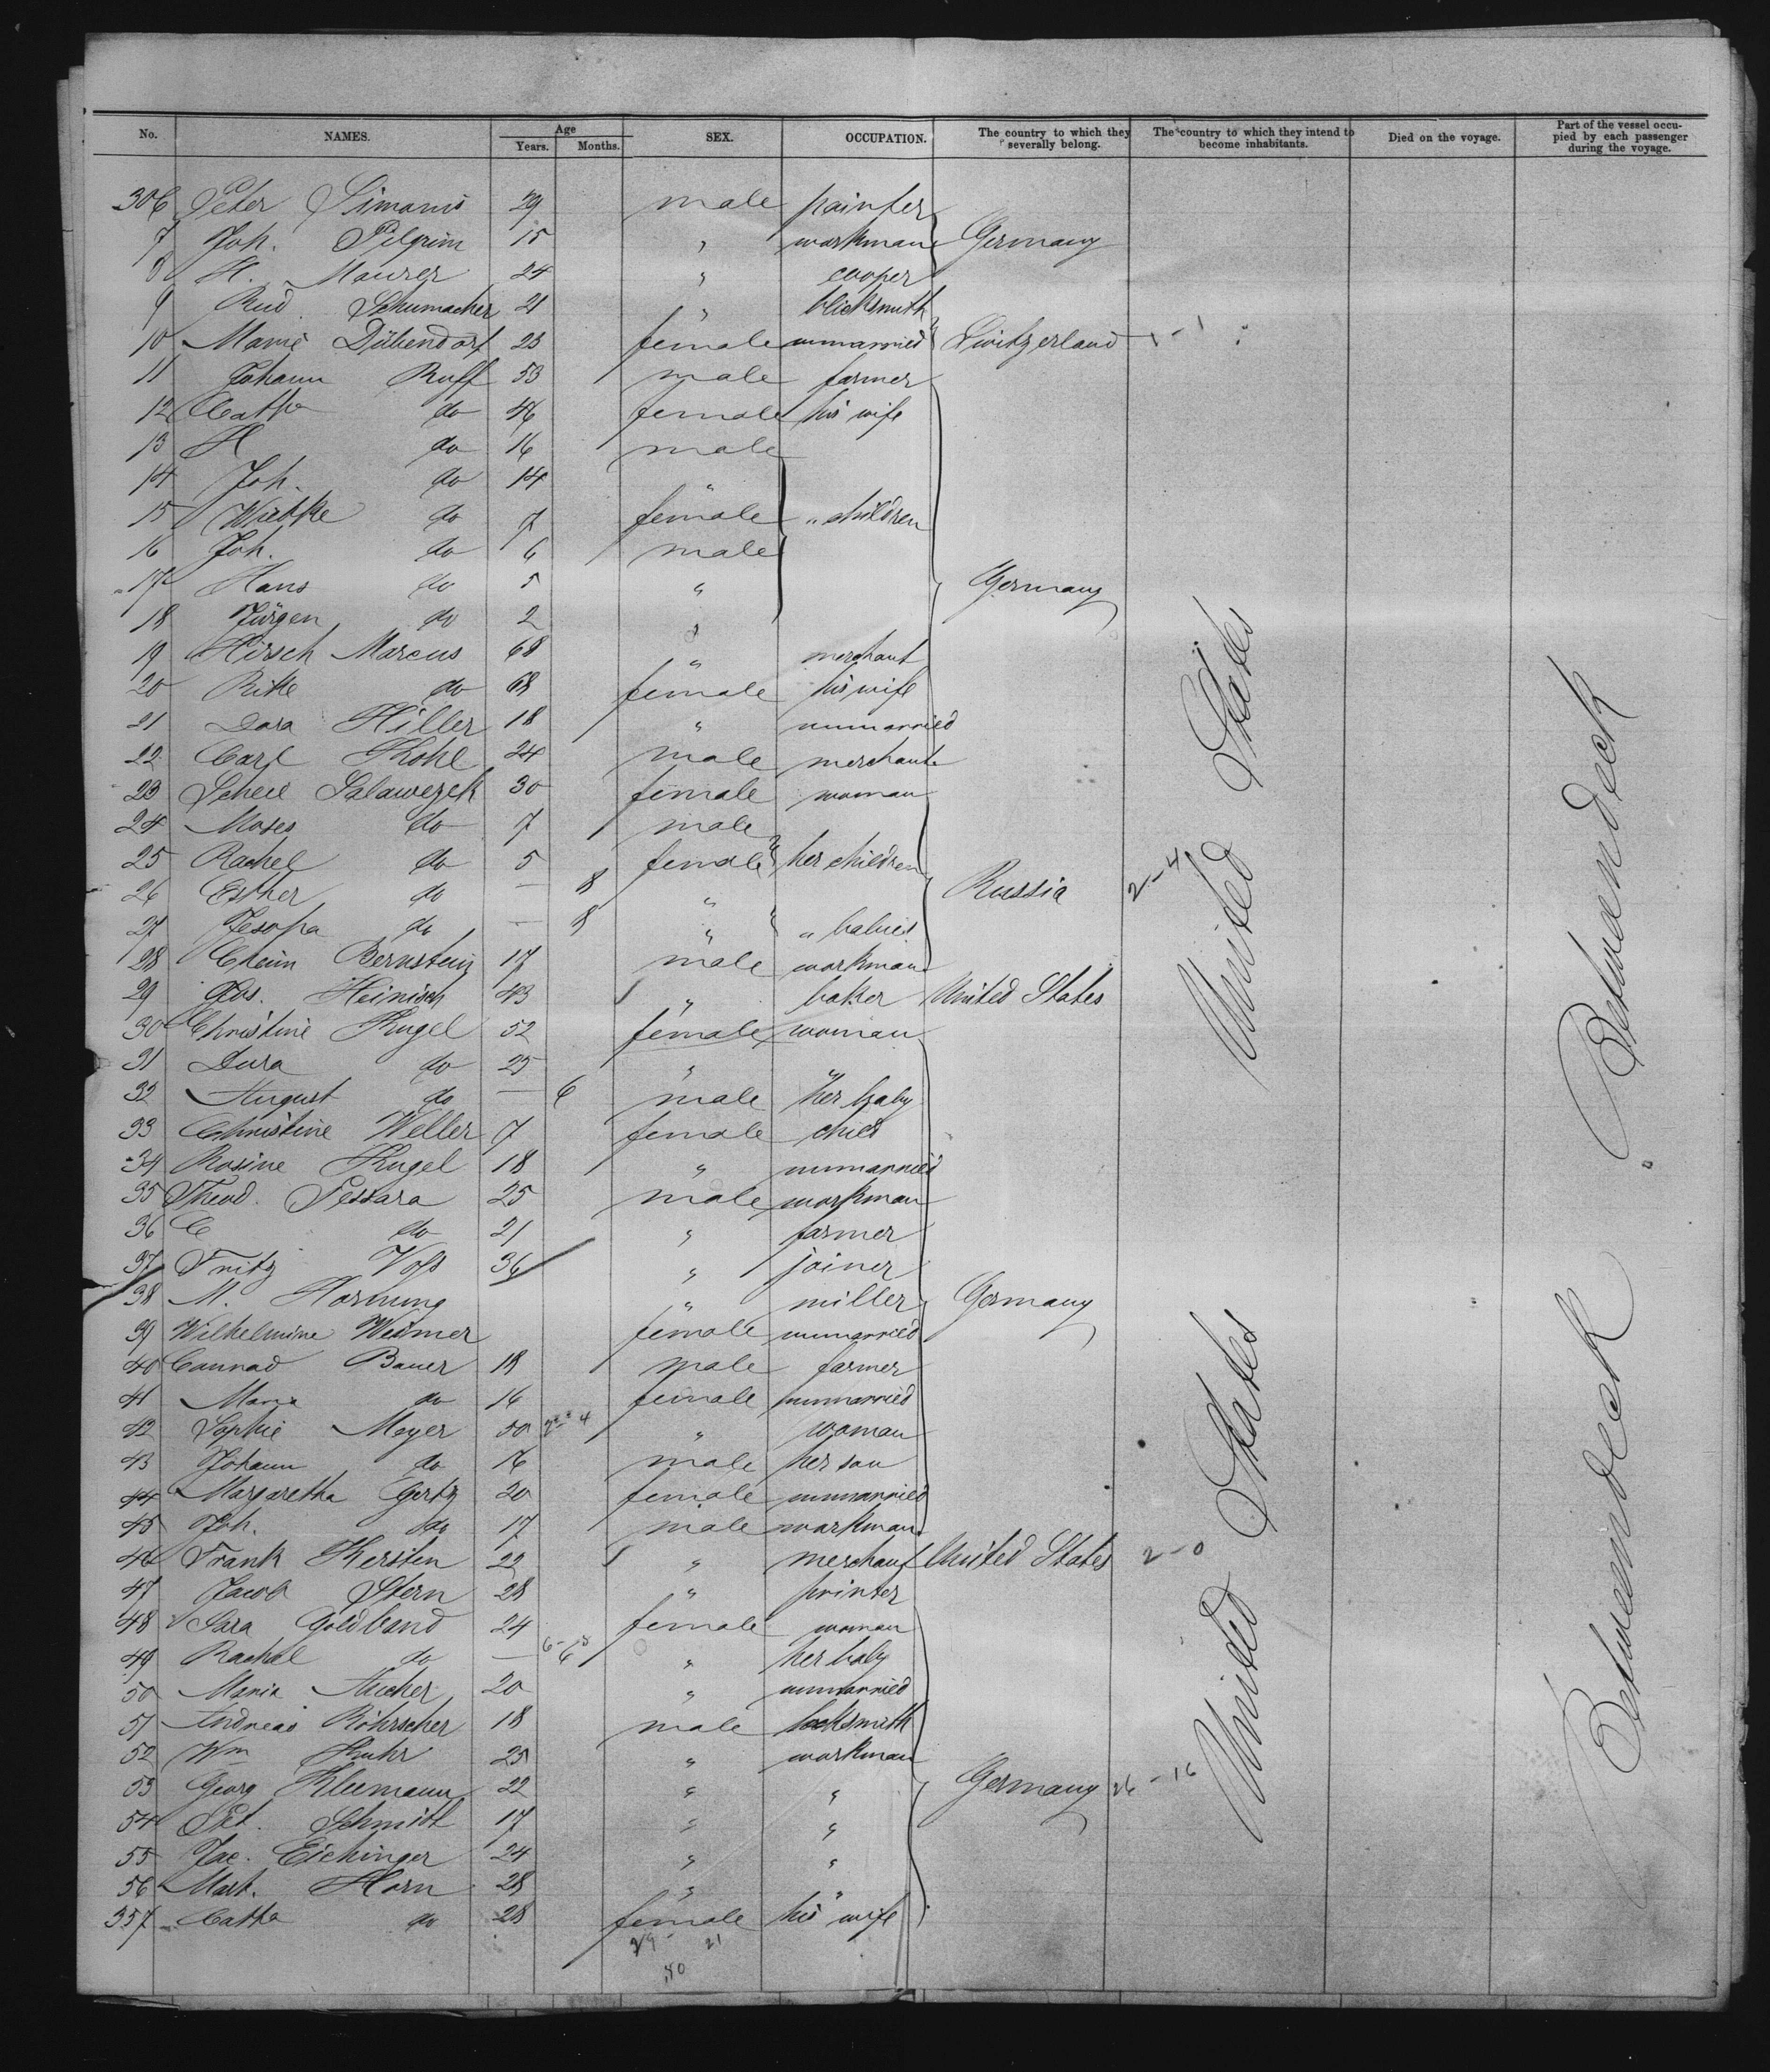 No. NAMES. Age Years. Months. SEX. OCCUPATION. The country to which they severally belong. The country to which they intend to become inhabitants. Died on the voyage. Part of the vessel occupied by each passenger during the voyage.
306 Peter Simonis 29 male painter
7 Joh. Pilgrim 15 " workman Germany
8 H. Maurer 24 " cooper
9 Rud. Schumacher 21 " blicksmith
10 Marie Dübendorf 23 female unmarried Switzerland 1-1
11 Johann Ruff 53 male farmer
12 Catha do 46 female his wife
13 H do 16 male
14 Joh. do 14 "
15 Wiebke do 7 female " children
16 Joh. do 6 male
17 Hans do 5 " Germany
18 Jürgen do 2 "
19 Hirsch Marcus 68 " merchant
20 Rike do 68 female his wife
21 Dora Hiller 18 " unmarried
22 Carl Kohl 24 male merchant
23 Scheie Salawezek 30 female woman
24 Moses do 7 male
25 Rachel do 5 female her children
26 Esther do — 8 " Russia 2-4
27 Jesopa do — 8 " " babies
28 Chaim Bernstein 17 male workman
29 Jos. Heinisch 43 " baker United States
30 Christine Kugel 52 female woman
31 Dora do 25 " "
32 August do — 6 male her baby
33 Christine Weller 7 female child
34 Rosine Kugel 18 " unmarried
35 Theod. Pessara 25 male workman
36 C do 21 " farmer
37 Fritz Voss 36 " joiner
38 M. Hornung " miller Germany
39 Wilhelmine Weimer female unmarried
40 Connad Bauer 18 male farmer
41 Maria do 16 female unmarried
42 Sophie Meyer 50 " woman
43 Johann do 16 male her son
44 Margaretha Gertz 20 female unmarried
45 Joh. do 17 male workman
46 Frank Kersten 22 " merchant United States 2-0
47 Jacob Stern 28 " printer
48 Sara Goldband 24 female woman
49 Rachel do — 6 " her baby
50 Maria Aucher 20 " unmarried
51 Andreas Röhrscher 18 male locksmith
52 Wm Kuhr 25 " workman
53 Georg Kleemann 22 " " Germany 26-16
54 Pet. Schmidt 17 " "
55 Jac. Eichinger 24 " "
56 Mart. Horn 28 " "
357 Catha do 28 female his wife
29- 21
50
United States
United States
Betweendeck
Betweendeck